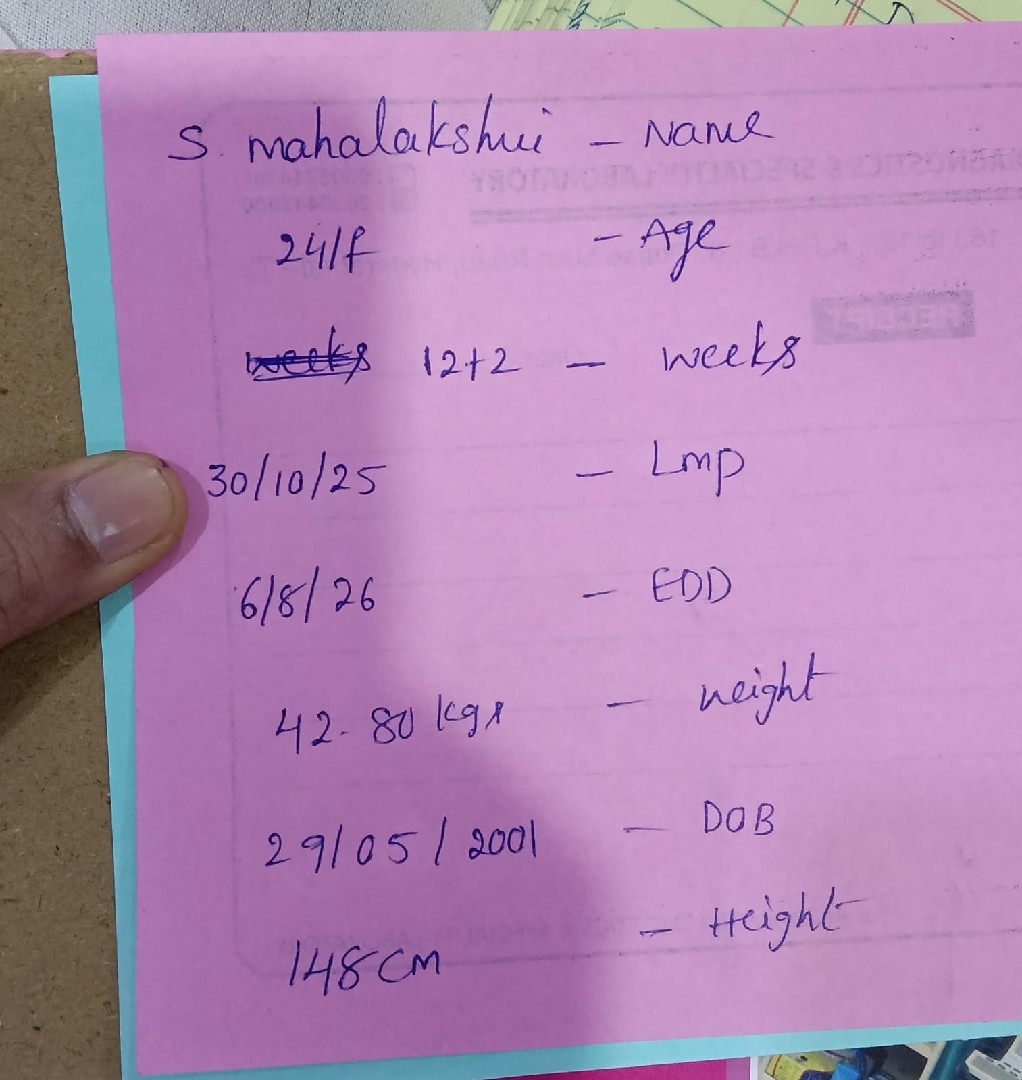 S. mahalakshmi - Name
24/f - Age
weeks 12+2 - weeks
30/10/25 - Lmp
6/8/26 - EDD
42.80 kgs - weight
29/05/2001 - DOB
148 cm - Height